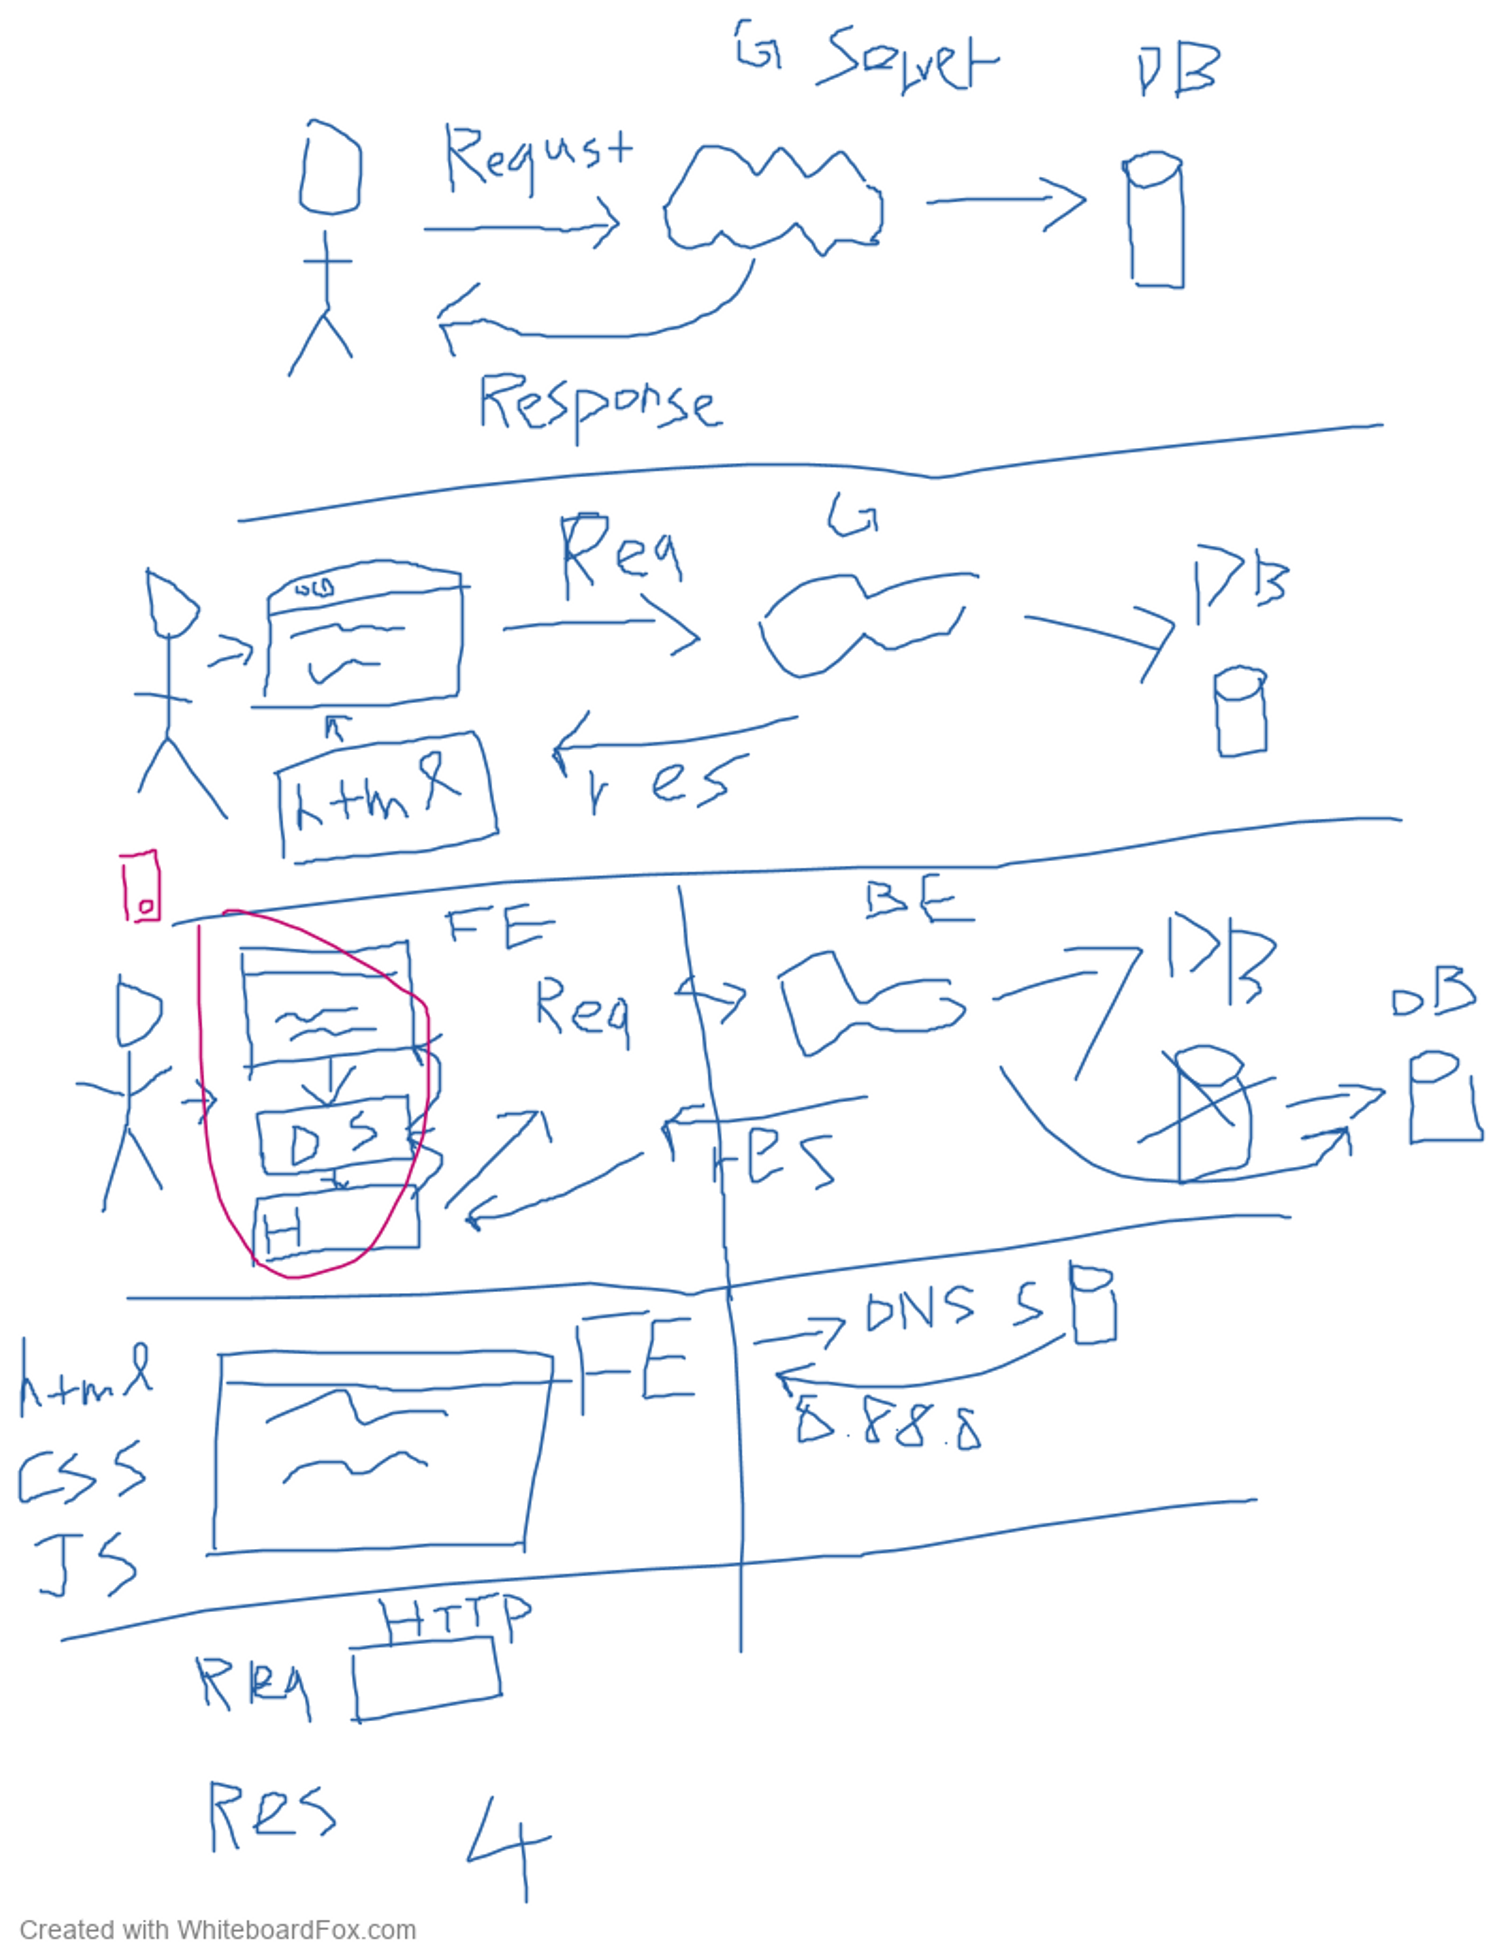 G Server DB
Requst
Response
G
Req
DB
html
res
BE
FE
DB
Req
DB
D S
res
H
DNS S
FE
html
8.8.8.8
CSS
JS
HTTP
Req
Res 4
Created with WhiteboardFox.com